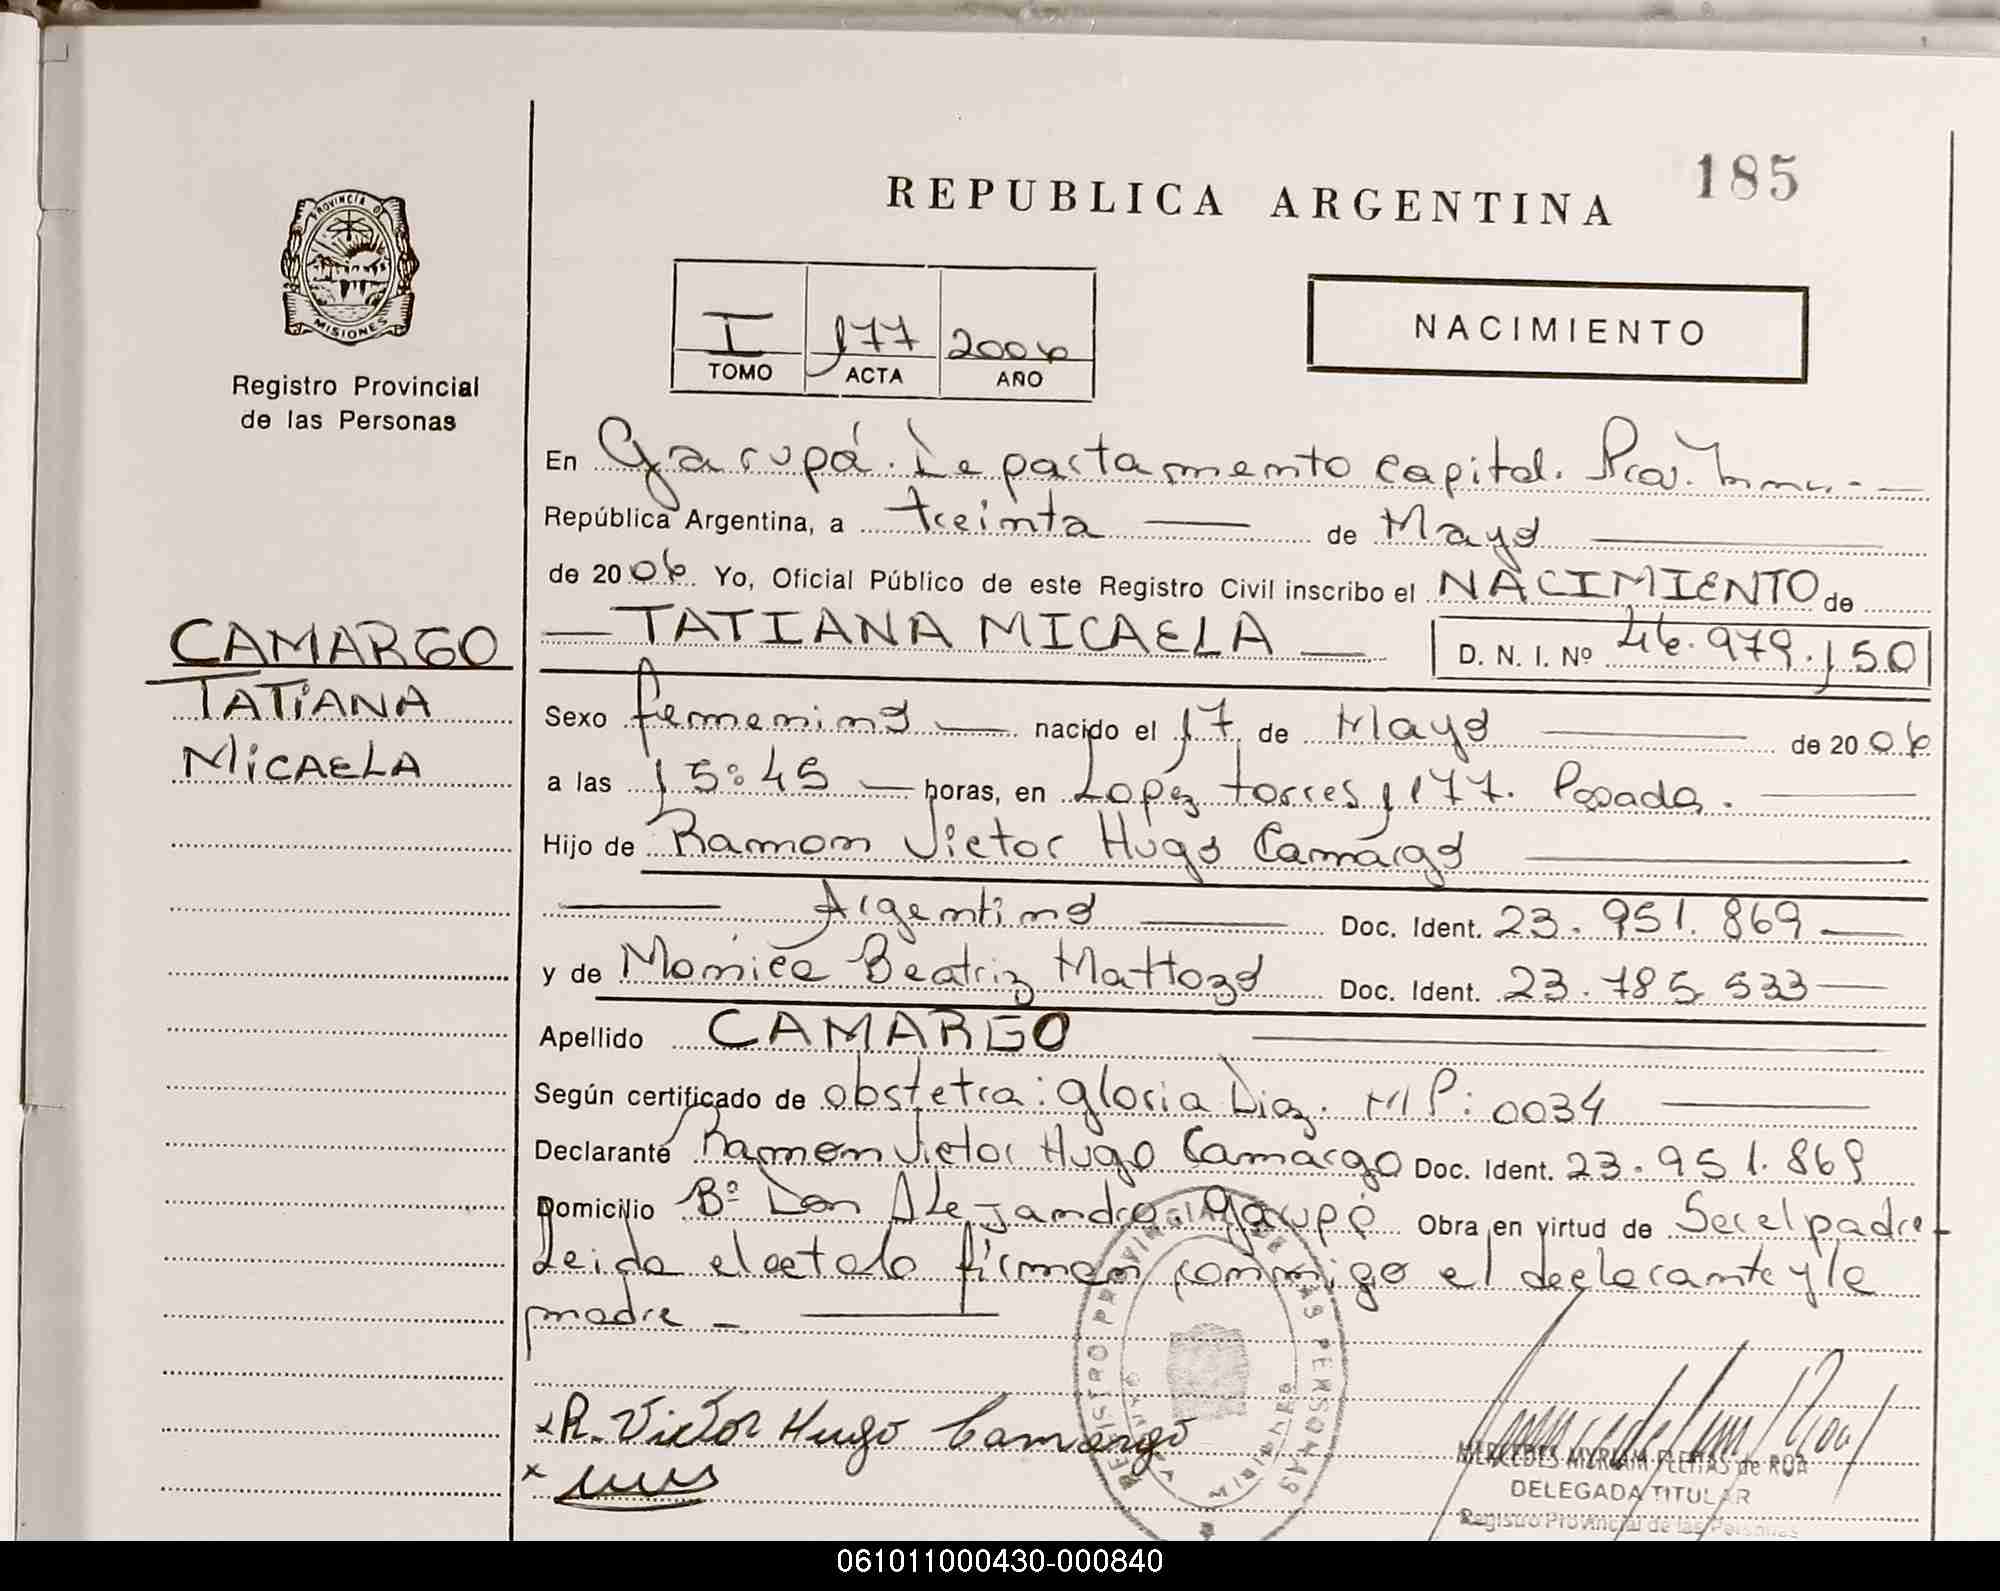 185
REPUBLICA ARGENTINA
PROVINCIA DE
MISIONES
Registro Provincial
de las Personas
I 177 2006
TOMO ACTA AÑO
NACIMIENTO
En Garupá. Departamento Capital. Prov.
República Argentina, a treinta de Mayo
de 2006 Yo, Oficial Público de este Registro Civil inscribo el NACIMIENTO de
TATIANA MICAELA D. N. I. Nº 46.979.150
CAMARGO
TATIANA
MICAELA
Sexo femenino nacido el 17 de Mayo de 2006
a las 15:45 horas, en Lopéz torres 1177. Posadas.
Hijo de Ramon Victor Hugo Camargo
Argentino Doc. Ident. 23.951.869
y de Monica Beatriz Mattozo Doc. Ident. 23.785.533
Apellido CAMARGO
Según certificado de obstetra: Gloria Diaz. MP: 0034
Declarante Ramon Victor Hugo Camargo Doc. Ident. 23.951.869
Domicilio Bº Don Alejandro Garupá Obra en virtud de Ser el padre
Leida el acta lo firman conmigo el declarante y la
madre
REGISTRO PROVINCIAL DE LAS PERSONAS
x R. Victor Hugo Camargo
x
MERCEDES MYRIAM FLEITAS de ROA
DELEGADA TITULAR
Registro Provincial de las Personas
061011000430-000840